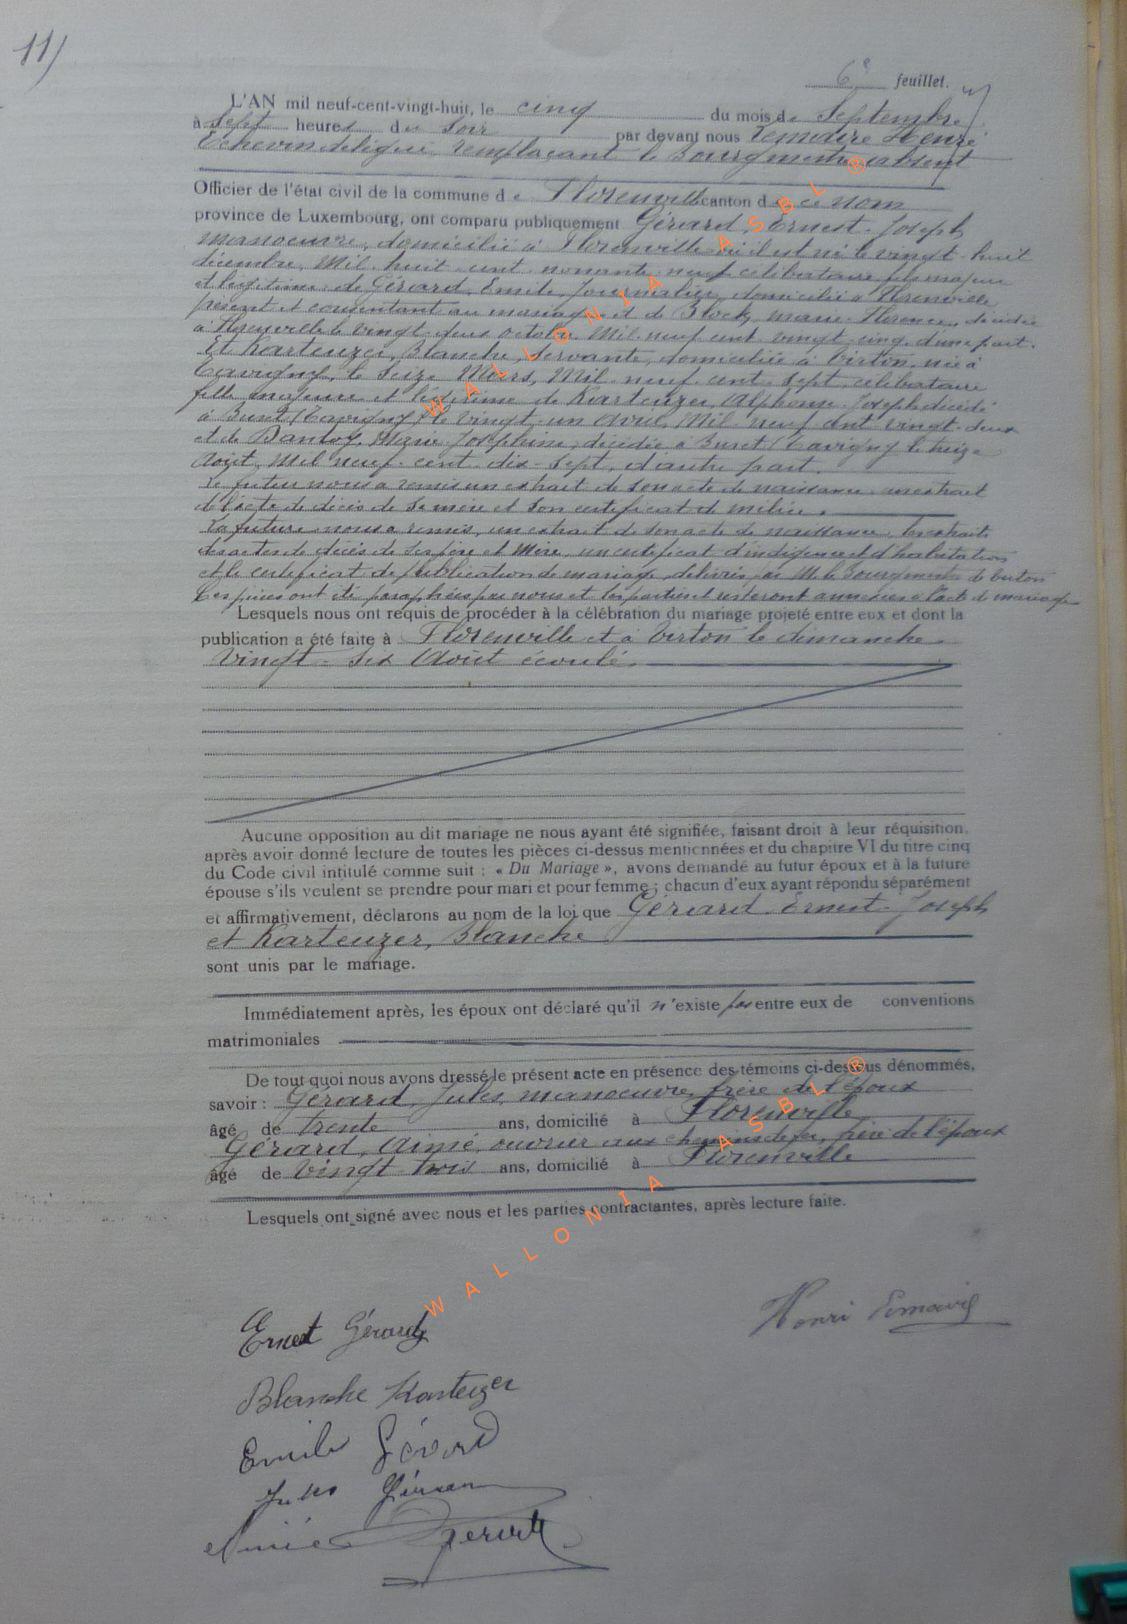 11)
6e feuillet.
L'AN mil neuf-cent-vingt-huit, le cinq du mois de Septembre
à sept heures du soir par devant nous Lemaire Henri
Echevin délégué, remplaçant le Bourgmestre absent
Officier de l'état civil de la commune de Florenville canton de ce nom
province de Luxembourg, ont comparu publiquement Gérard, Ernest-Joseph,
manoeuvre, domicilié à Florenville où il est né le vingt-huit
décembre, Mil huit cent nonante-neuf célibataire, fils majeur
et légitime de Gérard, Emile, Journalier, domicilié à Florenville
présent et consentant au mariage et de Block, Marie-Florence, décédée
à Florenville le vingt-deux octobre Mil neuf cent vingt-cinq, d'une part.
Et Karteuzer, Blanche, servante, domiciliée à Virton, née à
Tavigny, le seize Mars, Mil neuf cent sept, célibataire
fille majeure et légitime de Karteuzer, Alphonse-Joseph décédé
à Buret (Tavigny) le vingt-un avril Mil neuf cent vingt-deux
et de Marie-Joséphine, décédée à Buret (Tavigny) le treize
Août, Mil neuf cent dix-sept, d'autre part.
Le futur nous a remis un extrait de son acte de naissance, un extrait
de l'acte de décès de sa mère et son certificat de milice.
La future nous a remis, un extrait de son acte de naissance, les extraits
des actes de décès de ses père et mère, un certificat d'indigence et d'habitation
et le certificat de publication de mariage, délivrés par M. le Bourgmestre de Virton
Ces pièces ont été paraphées par nous et les parties et resteront annexées à l'acte de mariage
Lesquels nous ont requis de procéder à la célébration du mariage projeté entre eux et dont la
publication a été faite à Florenville et à Virton le dimanche
vingt-six Août écoulé.
Aucune opposition au dit mariage ne nous ayant été signifiée, faisant droit à leur réquisition,
après avoir donné lecture de toutes les pièces ci-dessus mentionnées et du chapitre VI du titre cinq
du Code civil intitulé comme suit : « Du Mariage », avons demandé au futur époux et à la future
épouse s'ils veulent se prendre pour mari et pour femme ; chacun d'eux ayant répondu séparément
et affirmativement, déclarons au nom de la loi que Gérard, Ernest-Joseph
et Karteuzer, Blanche
sont unis par le mariage.
Immédiatement après, les époux ont déclaré qu'il n'existe pas entre eux de conventions
matrimoniales
De tout quoi nous avons dressé le présent acte en présence des témoins ci-dessus dénommés,
savoir : Gérard, Jules, manoeuvre, frère de l'époux
âgé de trente ans, domicilié à Florenville
Gérard, Aimé, ouvrier aux chemins de fer, frère de l'époux
âgé de vingt-trois ans, domicilié à Florenville
Lesquels ont signé avec nous et les parties contractantes, après lecture faite.
Ernest Gérard
Henri Lemaire
Blanche Karteuzer
Emile Gérard
Jules Gérard
Aimé Gérard
WALLONIA ASBL®
WALLONIA ASBL®